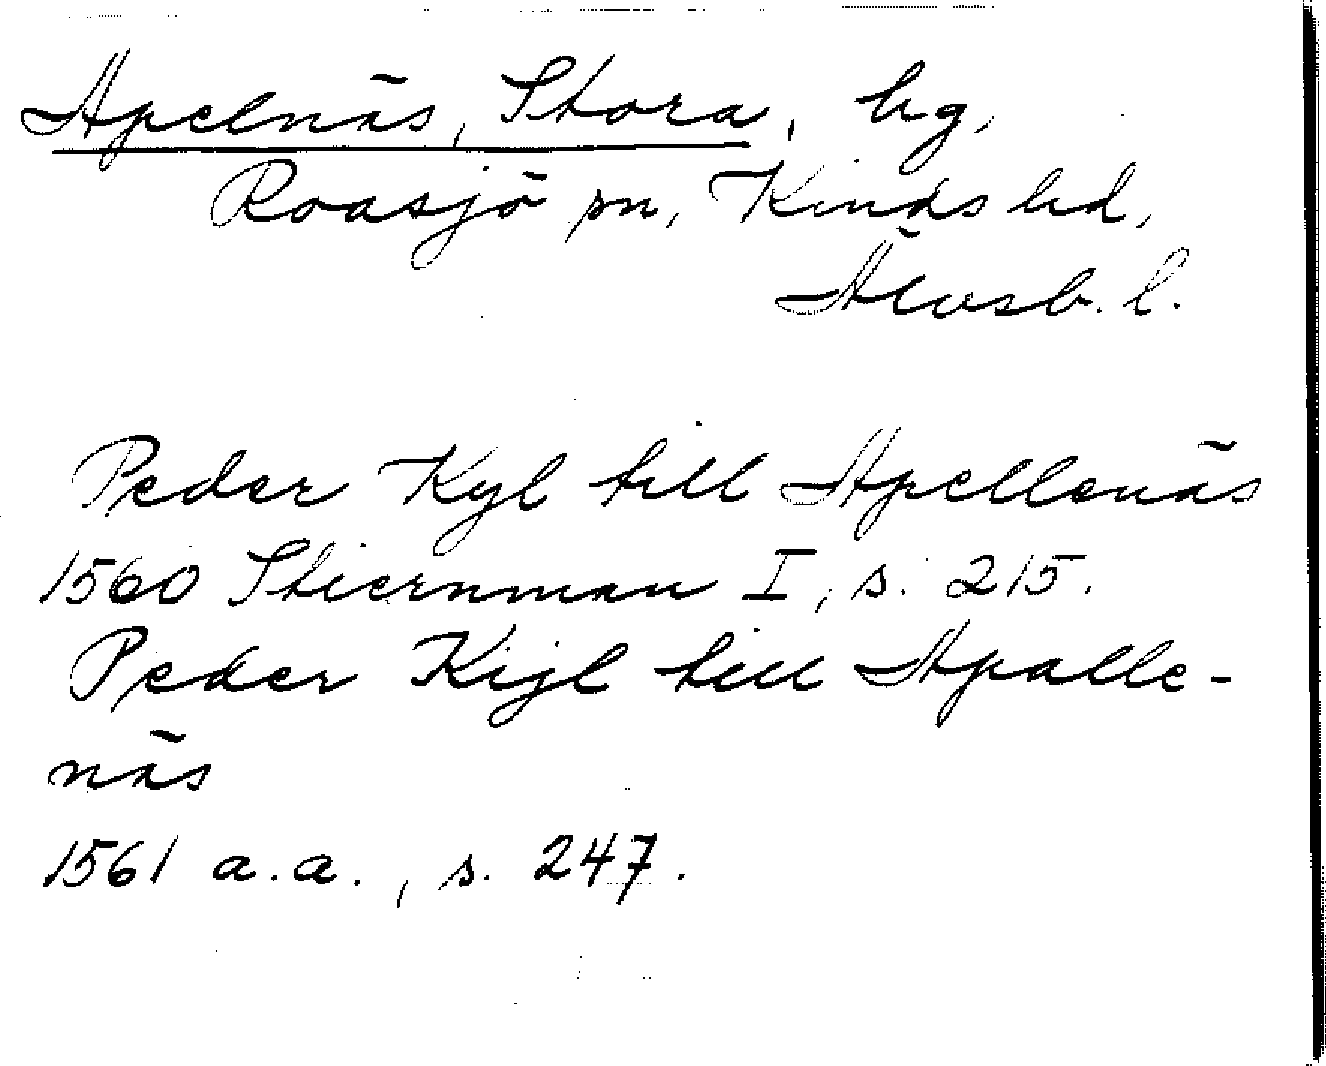 Apelnäs, Stora, hg,
Roasjö sn, Kinds hd,
Älvsb. l.
Peder Kyl till Apellenäs
1560 Stiernman I, s. 215.
Peder Kijl till Apalle-
näs
1561 a.a., s. 247.